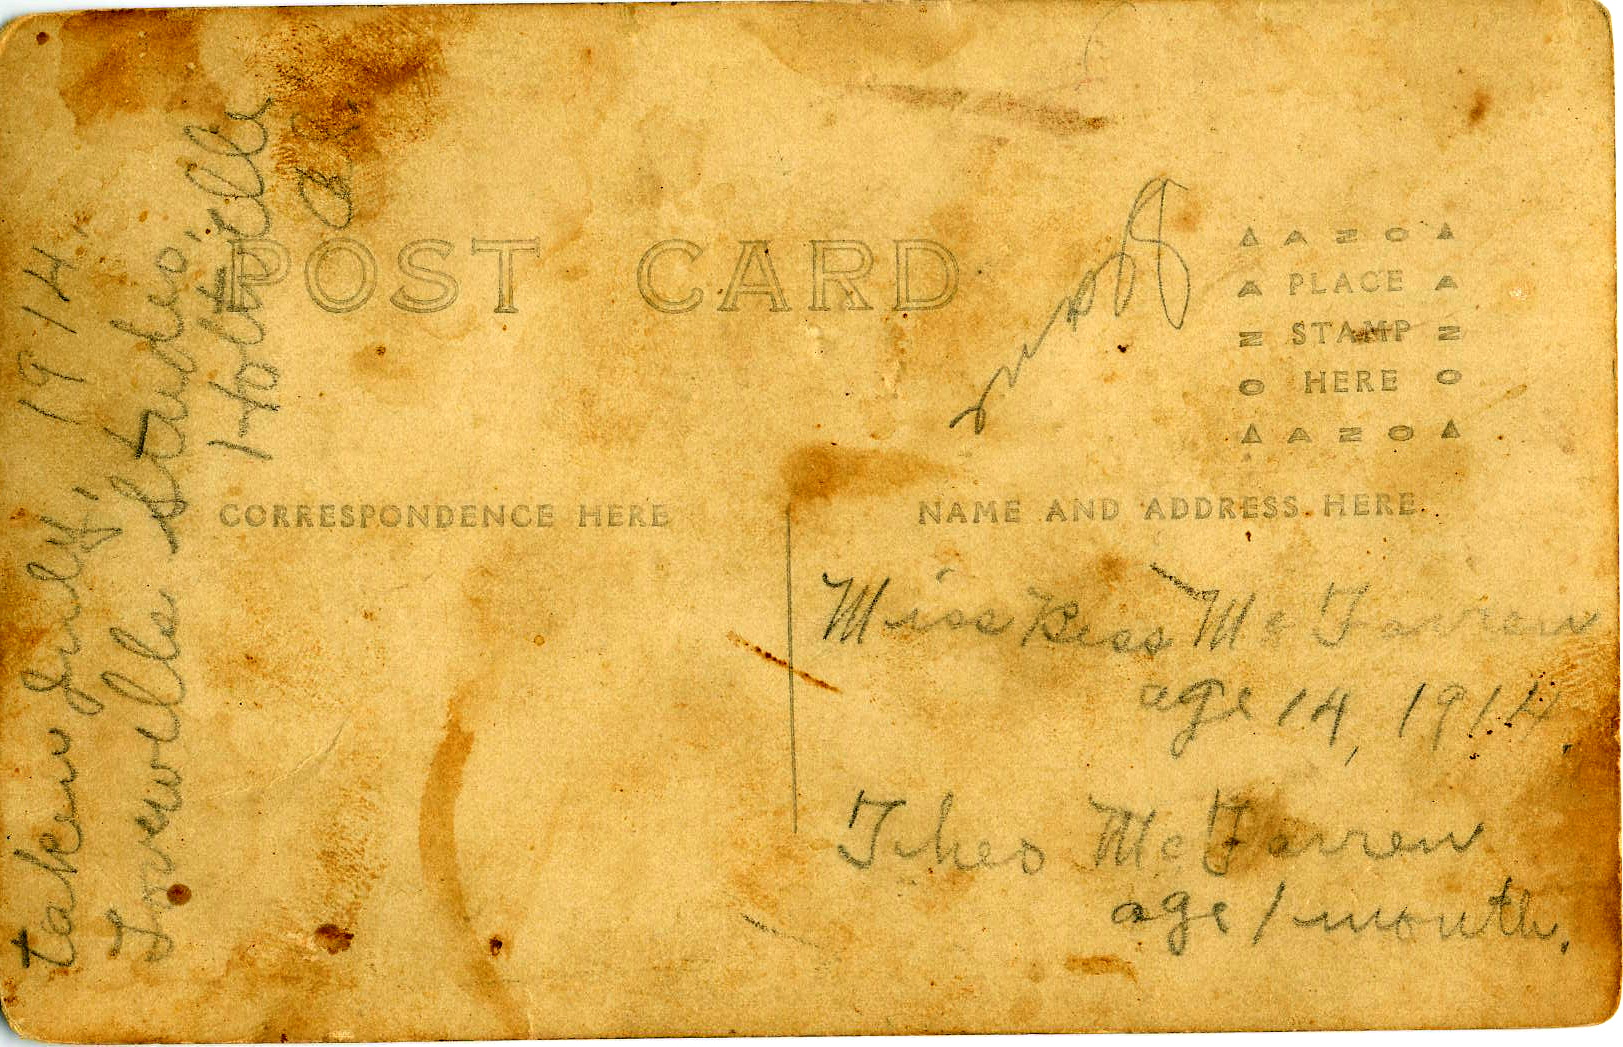 taken July, 1914.
studio,
Holtville
POST CARD
CORRESPONDENCE HERE
AZOA
PLACE
STAMP
HERE
AZOA
NAME AND ADDRESS HERE
Miss Bess McFarren
age 14, 1914.
Theo McFarren
age 1 month.